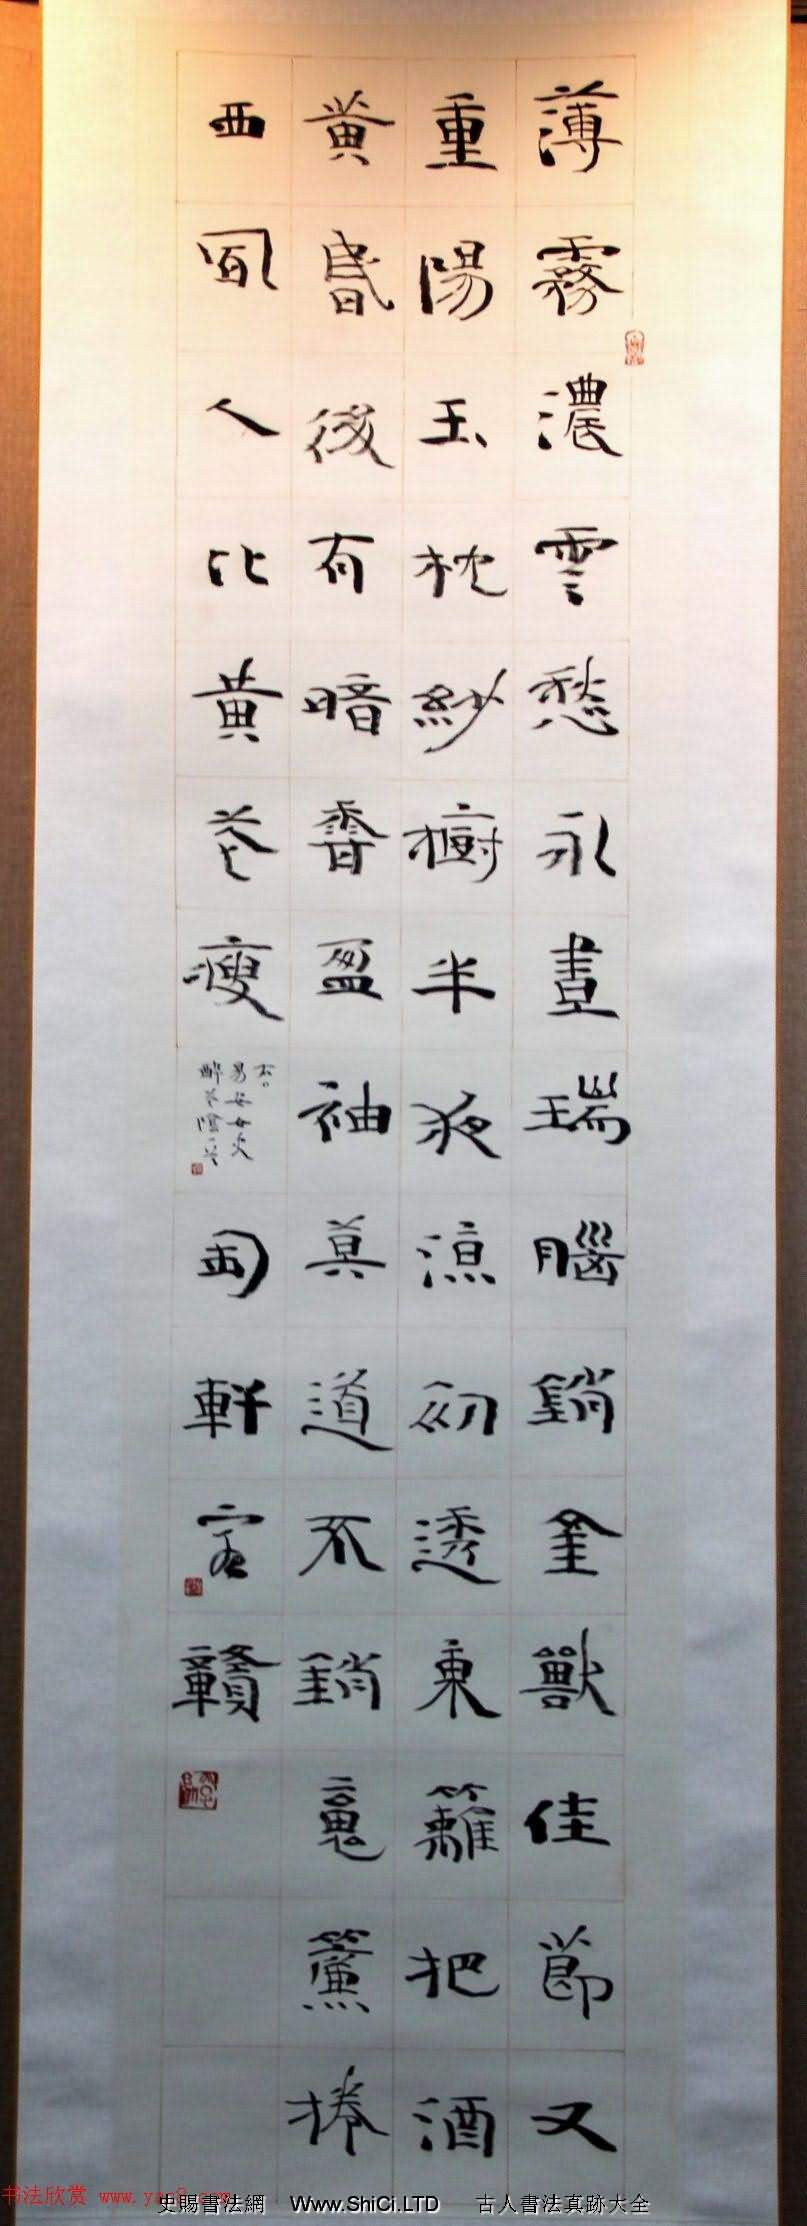 薄霧濃雲愁永晝瑞腦銷金獸佳節又
重陽玉枕紗櫥半夜涼初透東籬把酒
黃昏後有暗香盈袖莫道不銷魂簾捲
西風人比黃花瘦
右
易安女史
醉花陰
匋軒
书法欣赏 www.yac8.com
史賜書法網 Www.ShiCi.LTD 古人書法真跡大全